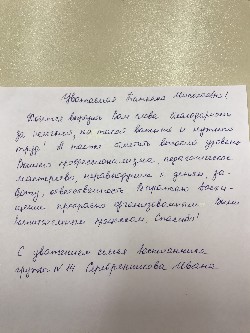 Уважаемая Татьяна Николаевна!
Хочется выразить Вам слова благодарности
за нелегкий, но такой важный и нужный
труд! А также отметить высокий уровень
Вашего профессионализма, педагогическое
мастерство, неравнодушие к детям, за-
боту, ответственность. Выражаю восхи-
щение прекрасно организованным Вами
воспитательным процессом, Спасибо!
С уважением семья воспитанника
группы № 14 Серебренникова Левана.